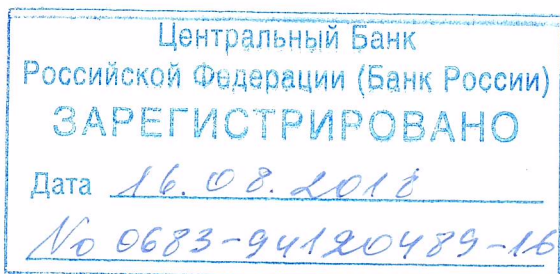 Центральный Банк
Российской Федерации (Банк России)
ЗАРЕГИСТРИРОВАНО
Дата 16.08.2018
No 0683-94120489-16